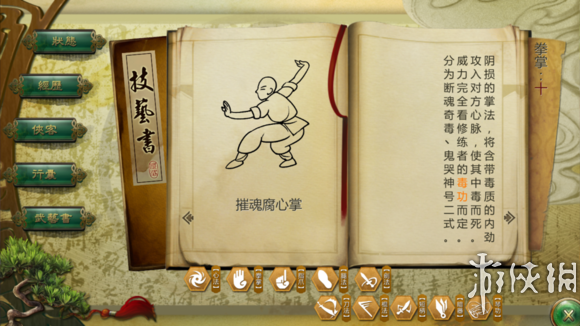 狀態
經歷
俠客
行囊
技藝書
技藝書
摧魂腐心掌
拳掌：十
阴损的掌法，将含带毒质的内劲
攻入对方心脉，使其中毒而死。
威力完全看修练者的毒功而定，
分为断魂奇毒、鬼哭神号二式。
游侠网